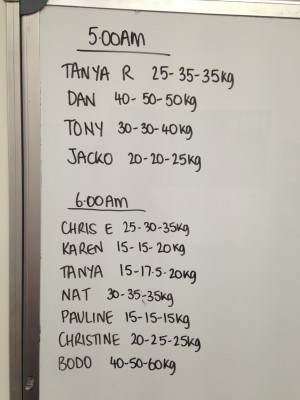 5:00AM
TANYA R 25-35-35kg
DAN 40-50-50kg
TONY 30-30-40kg
JACKO 20-20-25kg
6:00AM
CHRIS E 25-30-35kg
KAREN 15-15-20kg
TANYA 15-17.5-20kg
NAT 30-35-35kg
PAULINE 15-15-15kg
CHRISTINE 20-25-25kg
BODO 40-50-60kg